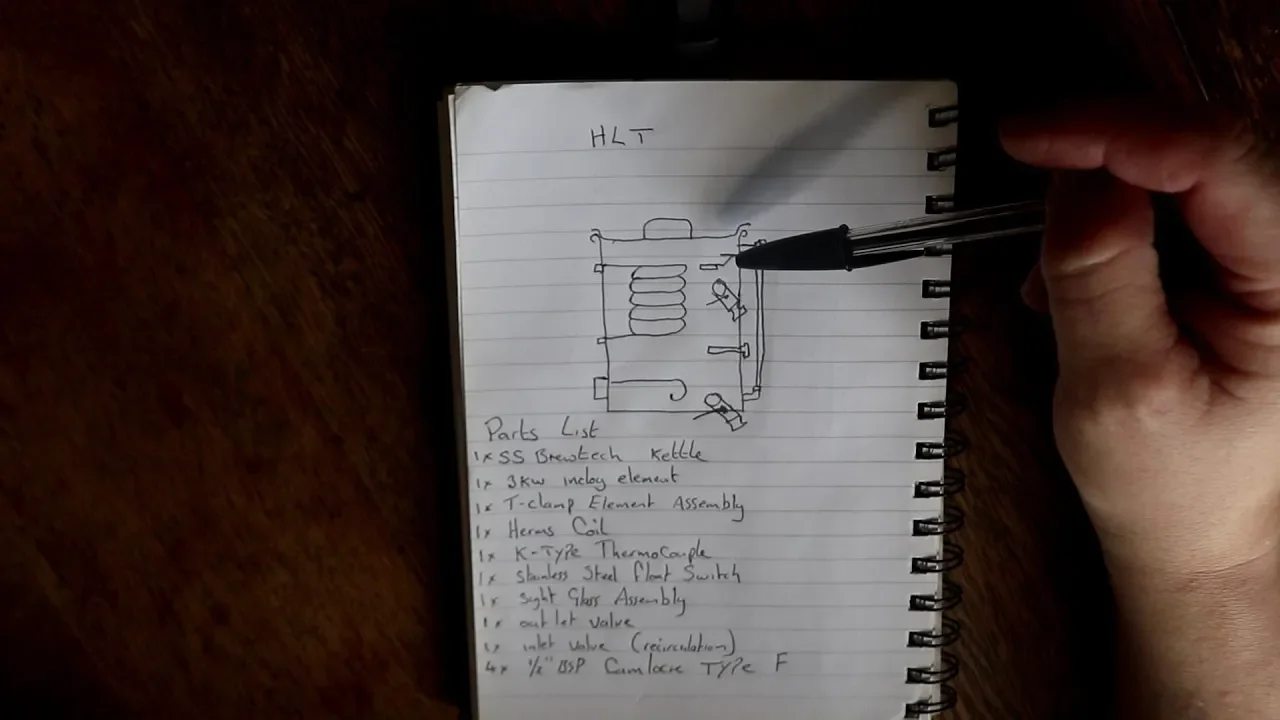 HLT
Parts List
1x SS Brewtech Kettle
1x 3kw incloy element
1x T-clamp Element Assembly
1x Herms Coil
1x K-Type ThermoCouple
1x Stainless Steel float Switch
1x Sight Glass Assembly
1x outlet valve
1x inlet valve (recirculation)
4x 1/2" BSP Camlock Type F